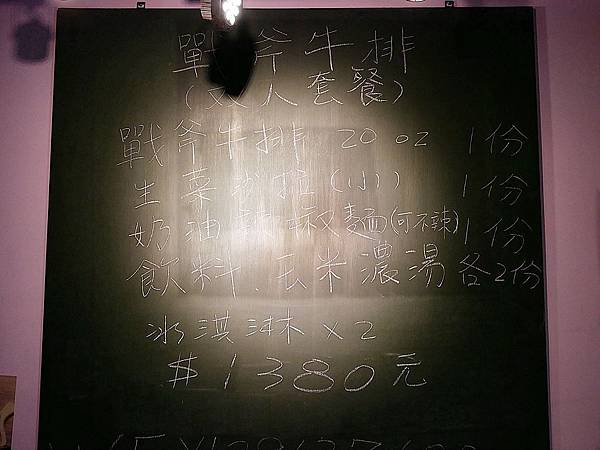 戰斧牛排
(双人套餐)
戰斧牛排 20 oz 1份
生菜沙拉(小) 1份
奶油辣椒麵(可不辣)1份
飲料、玉米濃湯各2份
冰淇淋 x 2
$1380元